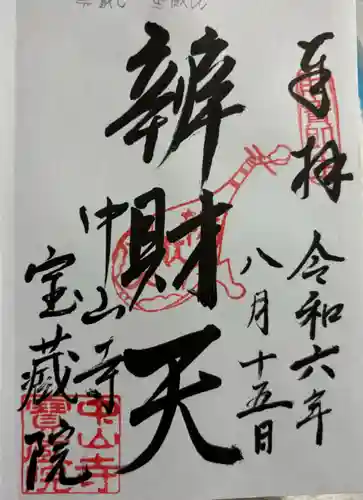 奉拝
令和六年
八月十五日
辨財天
中山寺
宝蔵院
中山寺
寶藏院